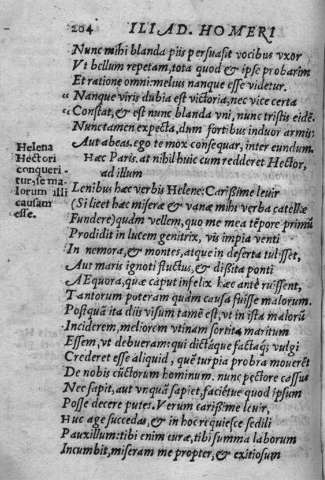 204 ILIAD. HOMERI
Nunc mihi blanda piis persuasit vocibus vxor
Vt bellum repetam, tota quod & ipse probarim
Et ratione omni: melius nanque esse videtur.
“ Nanque viris dubia est victoria, nec vice certa
“ Constat, & est nunc blanda vni, nunc tristis eidē.
Nunc tamen expecta, dum fortibus induor armis:
Aut abeas, ego te mox consequar, inter eundum.
Hæc Paris. at nihil huic cum redderet Hector,
ad illum
Helena
Hectori
conqueri-
tur, se ma-
lorum illi
causam
esse.
Lenibus hæc verbis Helene: Carißime leuir
(Si licet hæc miseræ & vanæ mihi verba catellæ
Fundere) quàm vellem, quo me mea tēpore primū
Prodidit in lucem genitrix, vis impia venti
In nemora, & montes, atque in deserta tulisset,
Aut maris ignoti fluctus, & dißita ponti
AEquora, quæ caput infelix hæc antè ruissent,
Tantorum poteram quàm causa fuisse malorum.
Postquā ita diis visum tamē est, vt in ista malorū
Inciderem, meliorem vtinam sortita maritum
Essem, vt debueram: qui dictáque factáq; vulgi
Crederet esse aliquid, quē turpia probra mouerēt
De nobis cūctorum hominum. nunc pectore cassus
Nec sapit, aut vnquā sapiet, faciētue quod ipsum
Posse decere putes. Verum carißime leuir,
Huc age succedas, & in hoc requiesce sedili
Pauxillum: tibi enim curæ, tibi summa laborum
Incumbit, miseram me propter, & exitiosum